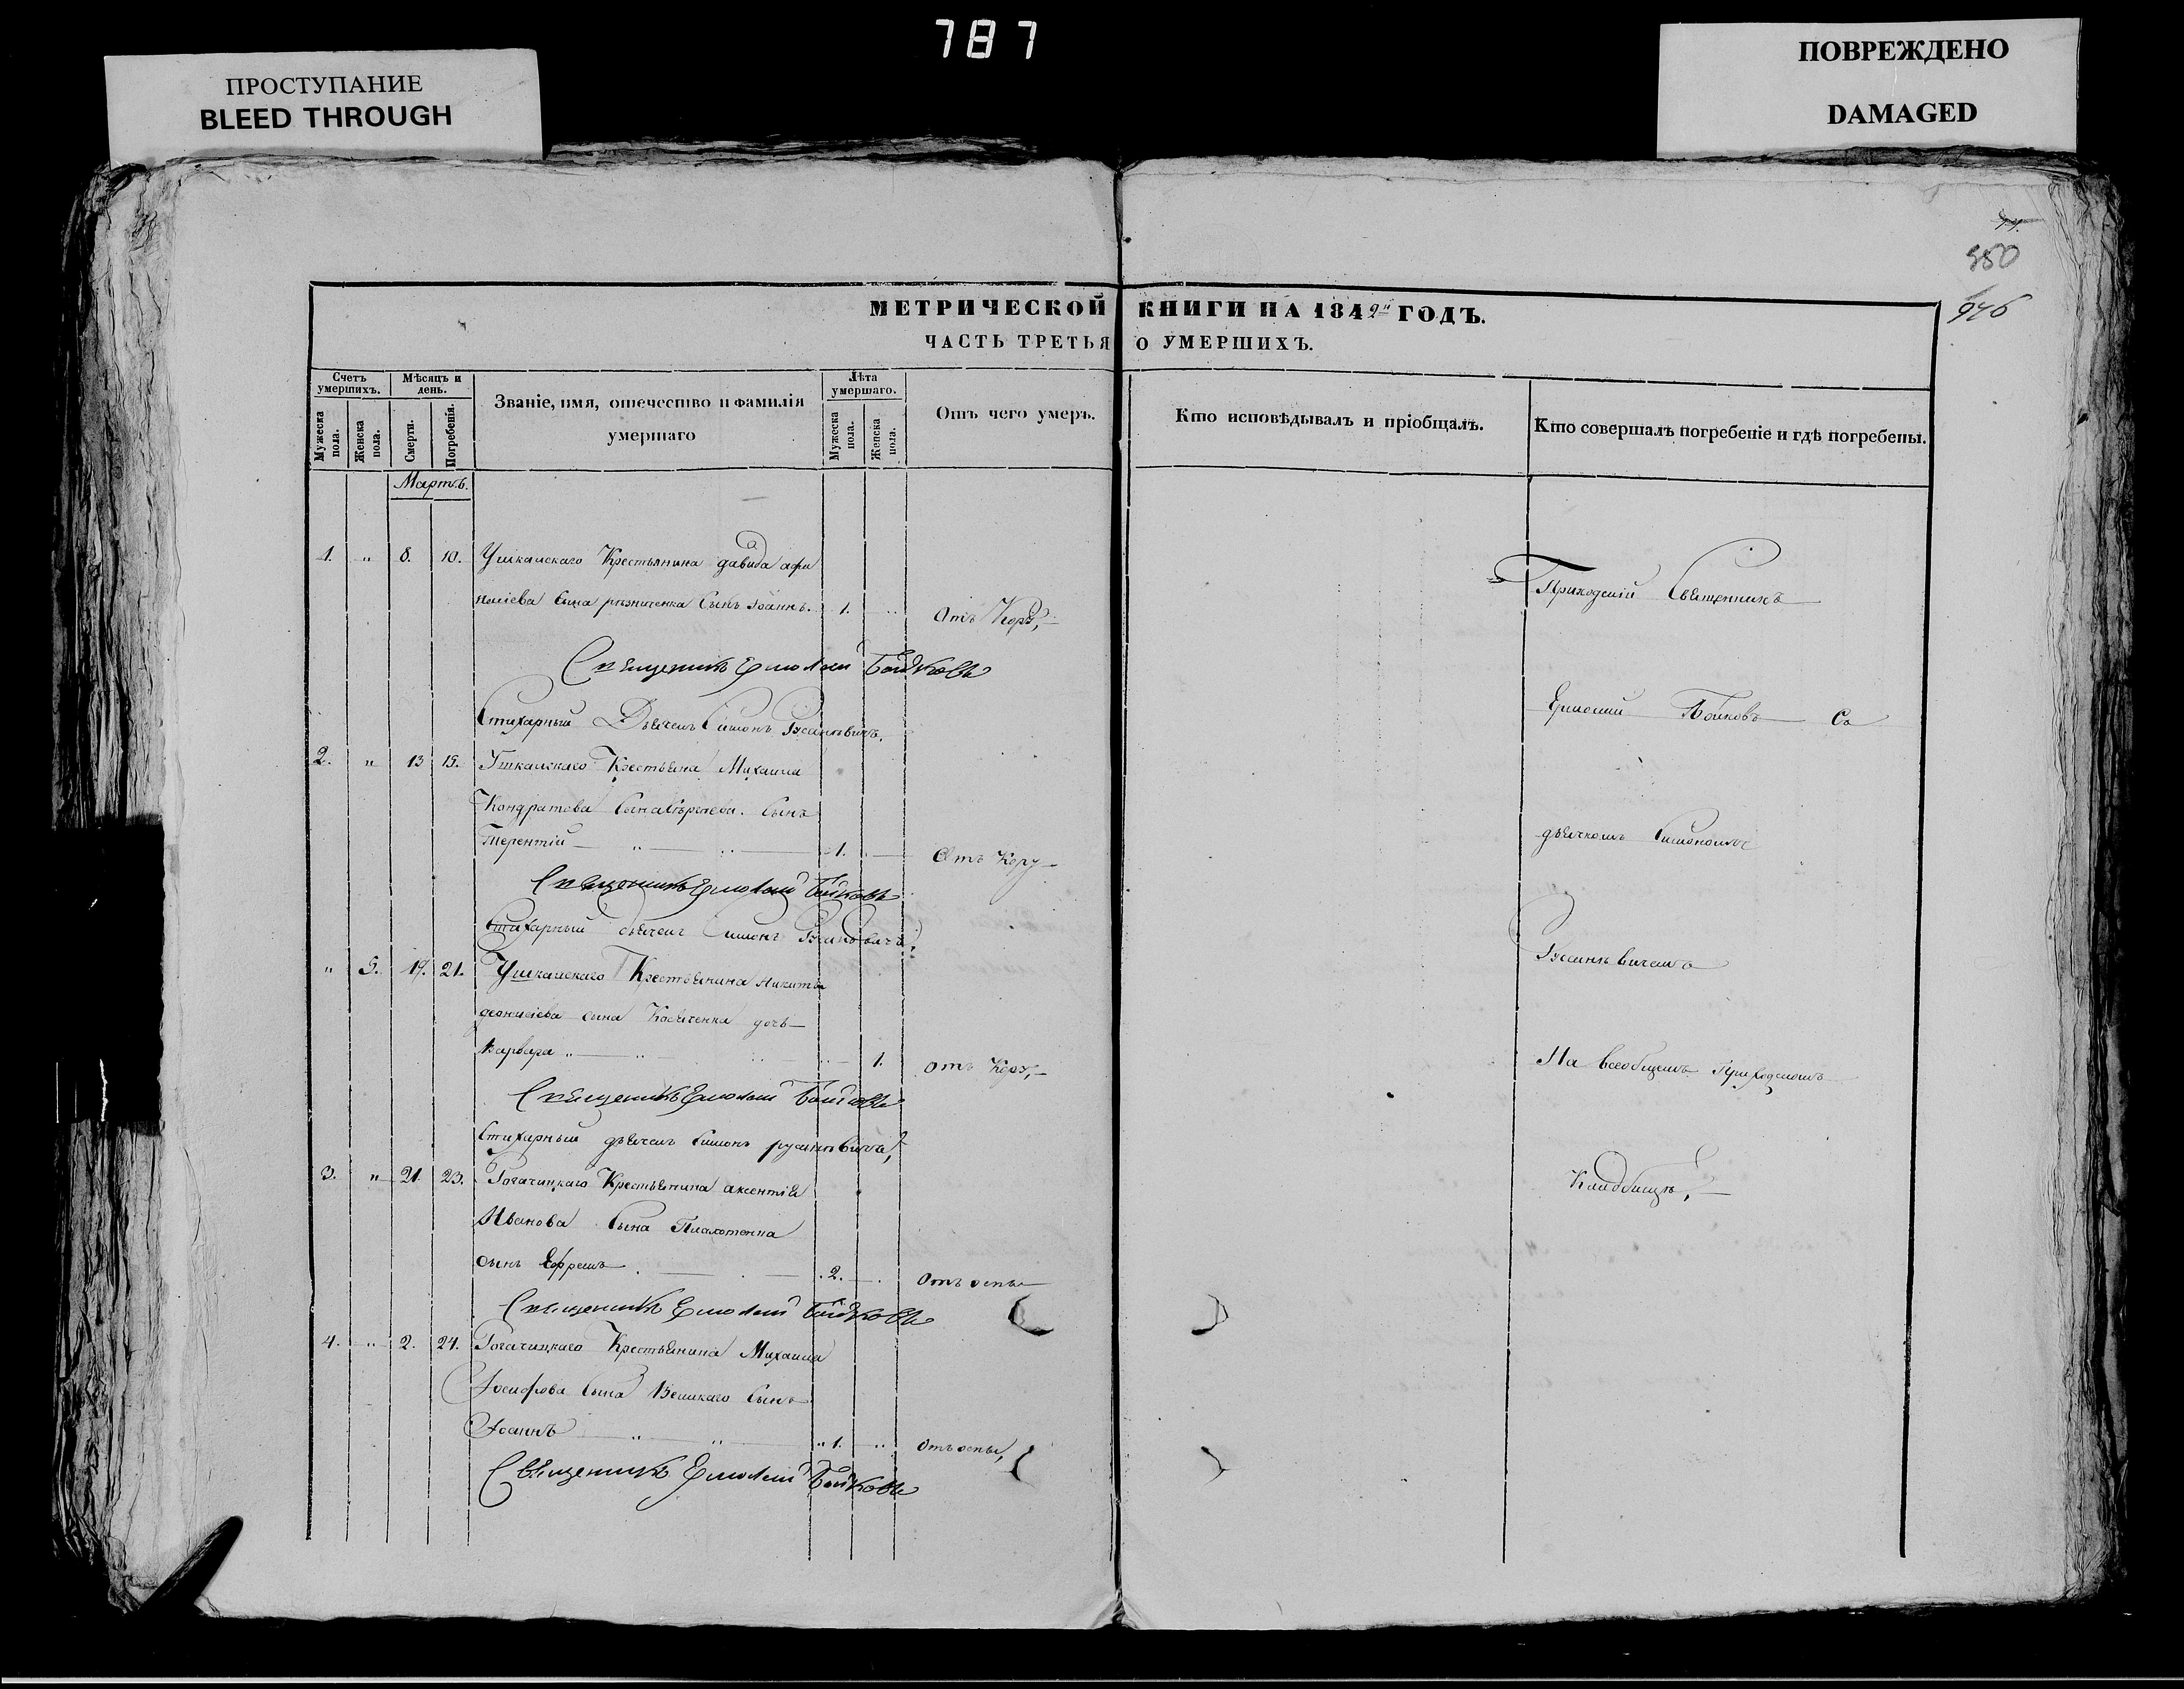 787
ПРОСТУПАНИЕ
BLEED THROUGH
ПОВРЕЖДЕНО
DAMAGED
350
946
МЕТРИЧЕСКОЙ КНИГИ НА 1842й ГОДЪ.
ЧАСТЬ ТРЕТЬЯ О УМЕРШИХЪ.
Счетъ умершихъ.
Мужеска пола.
Женска пола.
Мѣсяцъ и день.
Смерти.
Погребенія.
Званіе, имя, отечество и фамилія умершаго
Лѣта умершаго.
Мужеска пола.
Женска пола.
Отъ чего умеръ.
Кто исповѣдывалъ и пріобщалъ.
Кто совершалъ погребеніе и гдѣ погребены.
Мартъ.
1. " 8. 10. Ушкалскаго Крестьянина давида
сына Сынъ Іоаннъ. 1. Отъ Кору,
Священникъ Ермолай Бойковъ
Стихарный Дьячекъ Симонъ Русановичъ.
2. " 13 15. Ушкалскаго Крестьяна Михаила
Кондратова Сына Сынъ
Терентій 1. Отъ Кору
Священникъ Ермолай Бойковъ
Стихарный дьячекъ Симонъ Русановичъ
" 5. 19. 21. Ушкалскаго Крестьянина Никиты
деонисіева сына дочь
Варвара 1. Отъ Кору,
Священникъ Ермолай Бойковъ
Стихарный дьячекъ Симонъ русановичъ,
3. " 21. 23. Рогачицкаго Крестьянина аксентія
Иванова Сына Плахотенка
сынъ Ефремъ 2. Отъ оспы
Священникъ Ермолай Бойковъ
4. " 2. 24. Рогачицкаго Крестьянина Михаила
Іосифова Сына Великаго Сынъ
Іоаннъ " 1. Отъ оспы,
Священникъ Ермолай Бойковъ
Приходскій Священникъ
Ермолай Бойковъ Съ
дьячкомъ Симономъ
Русановичемъ
На всеобщемъ Приходскомъ
Кладбищѣ,